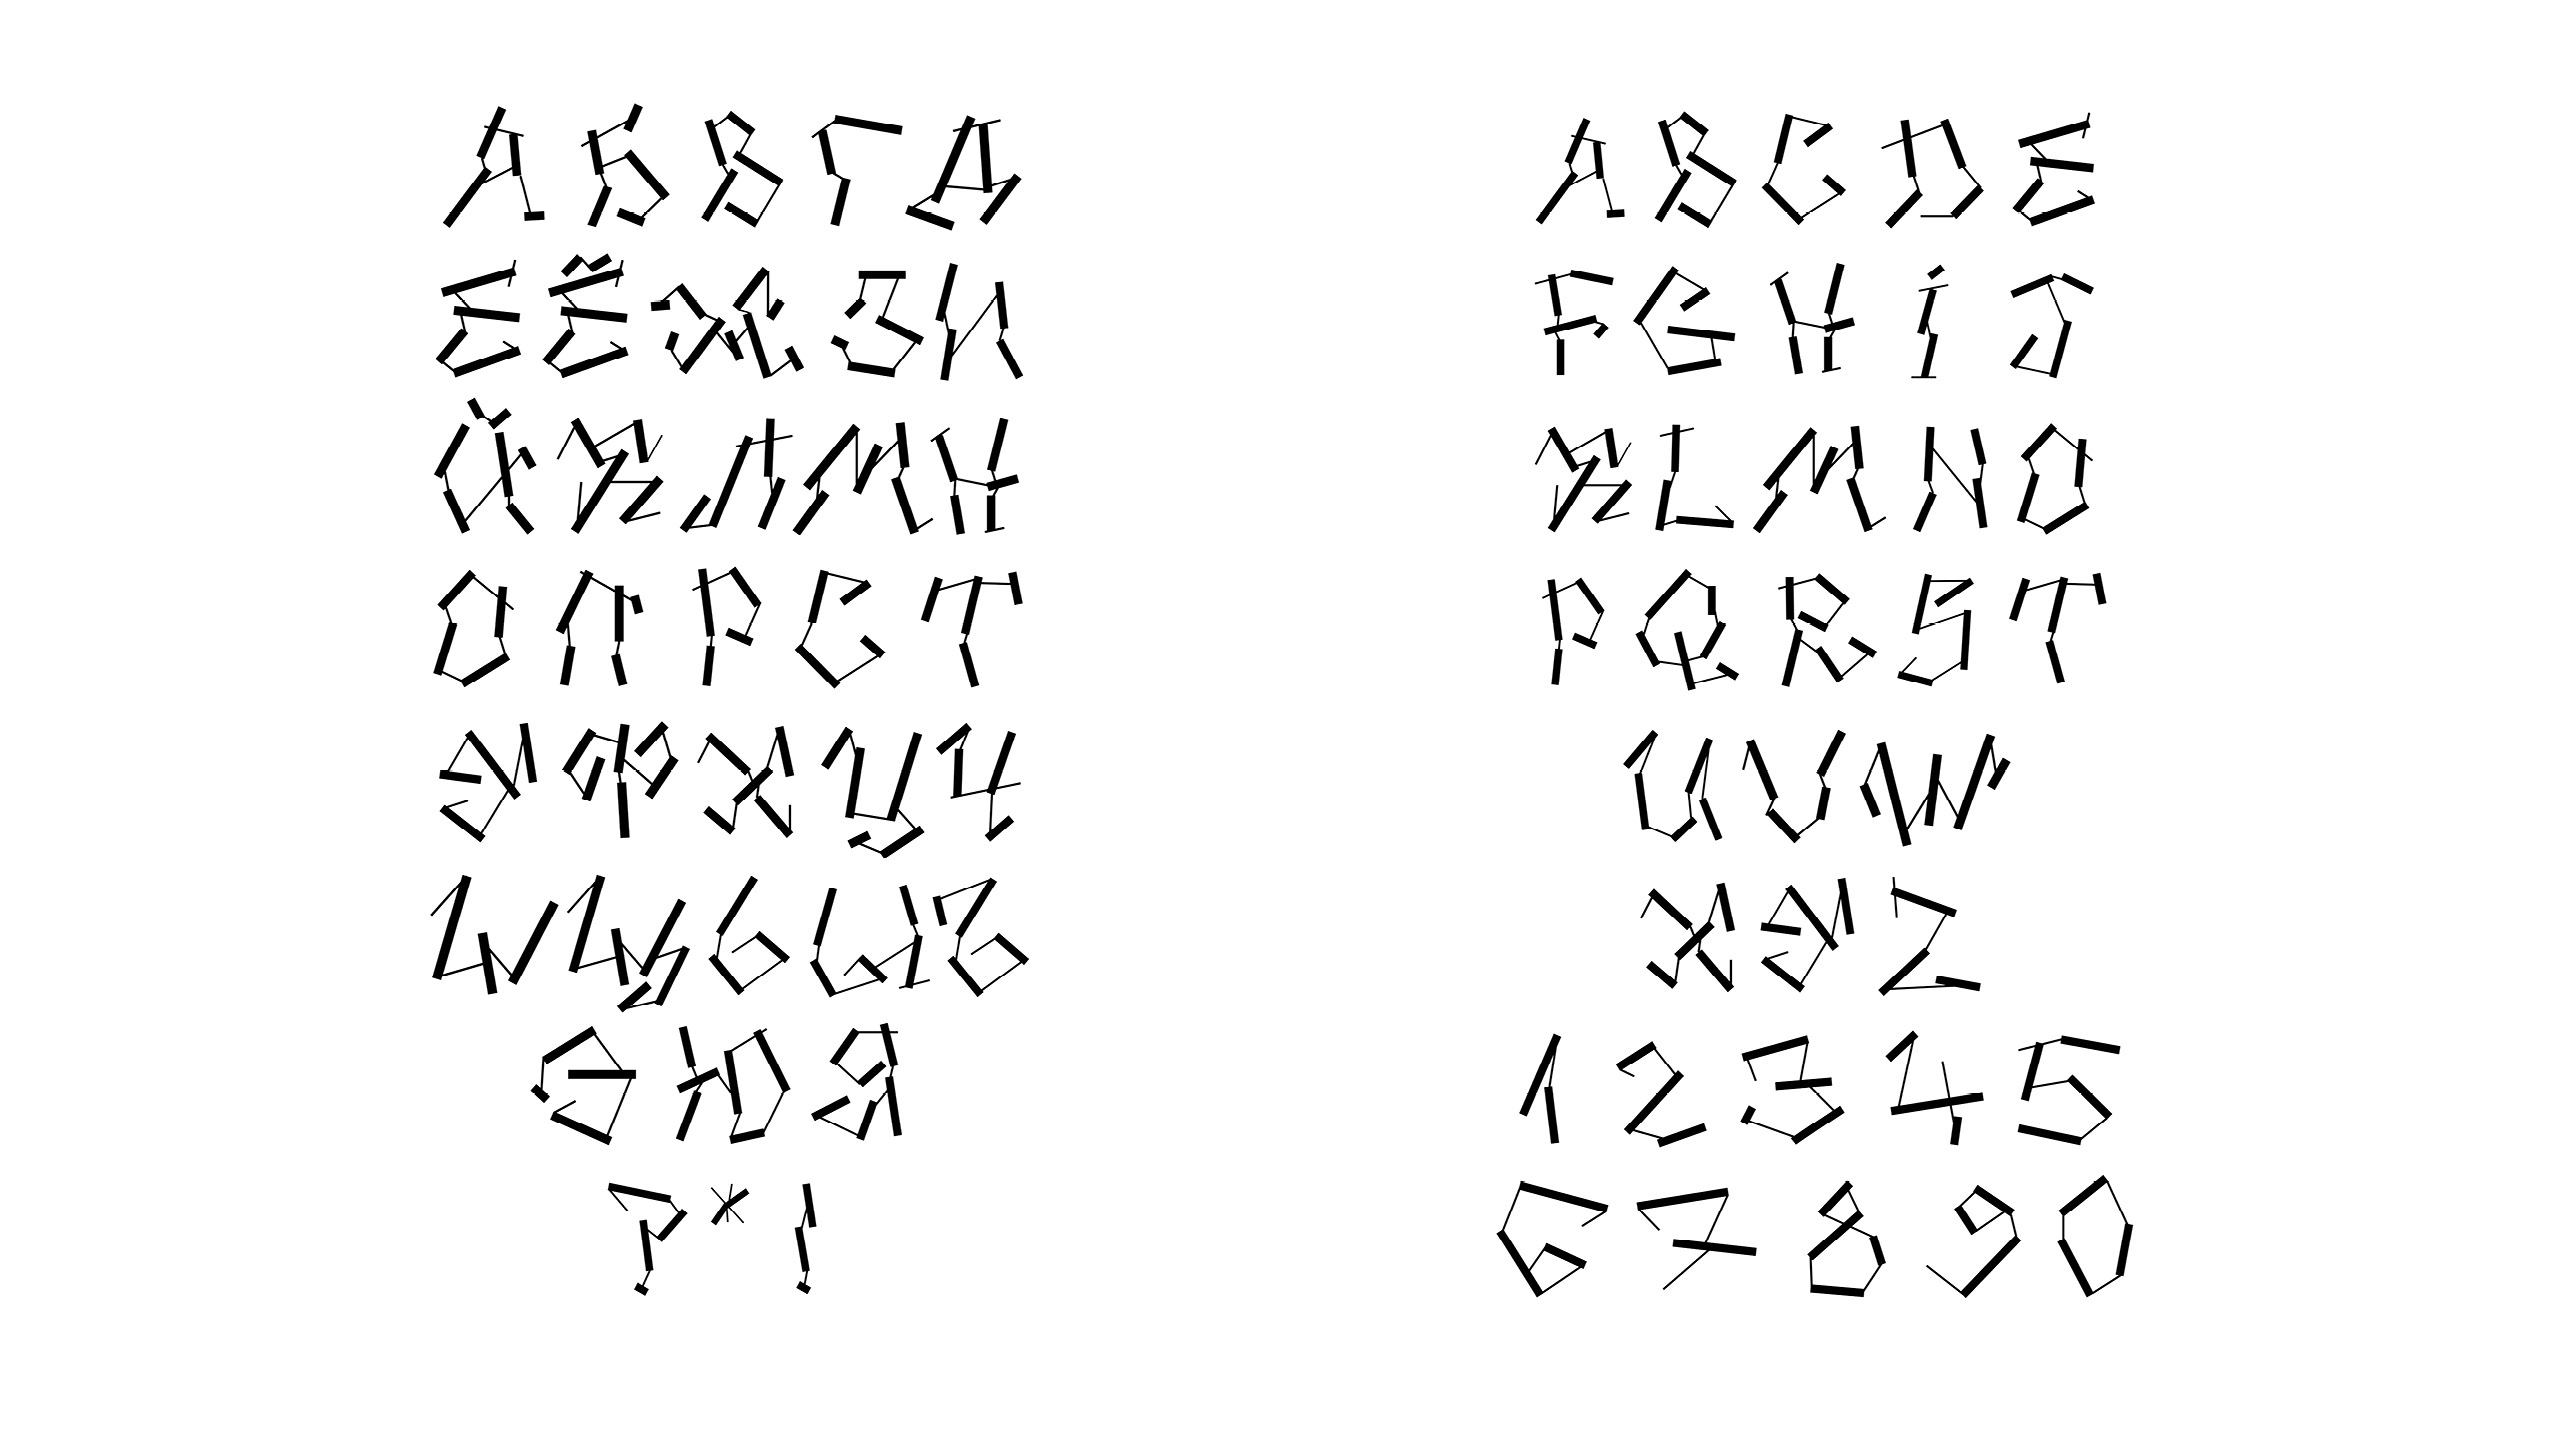 А Б В Г Д
Е Ё Ж З И
Й К Л М Н
О П Р С Т
У Ф Х Ц Ч
Ш Щ Ь Ы Ъ
Э Ю Я
? * !
A B C D E
F G H i J
K L M N O
P Q R S T
U V W
X Y Z
1 2 3 4 5
6 7 8 9 0